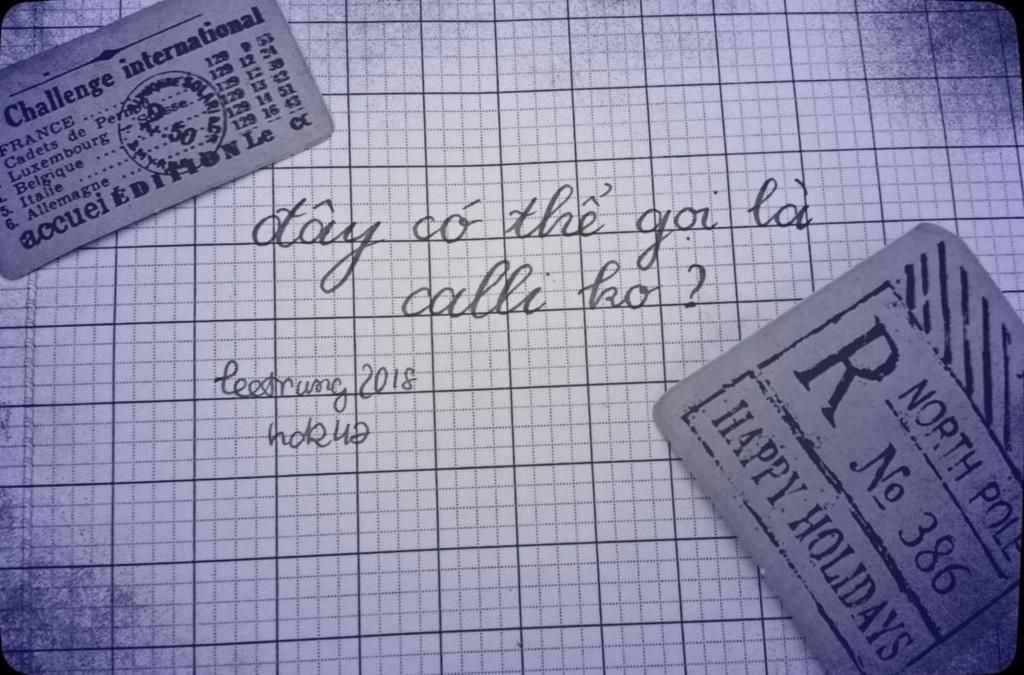 Challenge international
FRANCE
Cadets de
Luxembourg
Belgique
5. Italie
6. Allemagne
129 9 53
129 12
129 12
129 13
129 14 51
129 16
accuei ÉDITION Le
đây có thể gọi là
calli ko ?
leetrung 2018
R
NORTH POLE
No 386
HAPPY HOLIDAYS